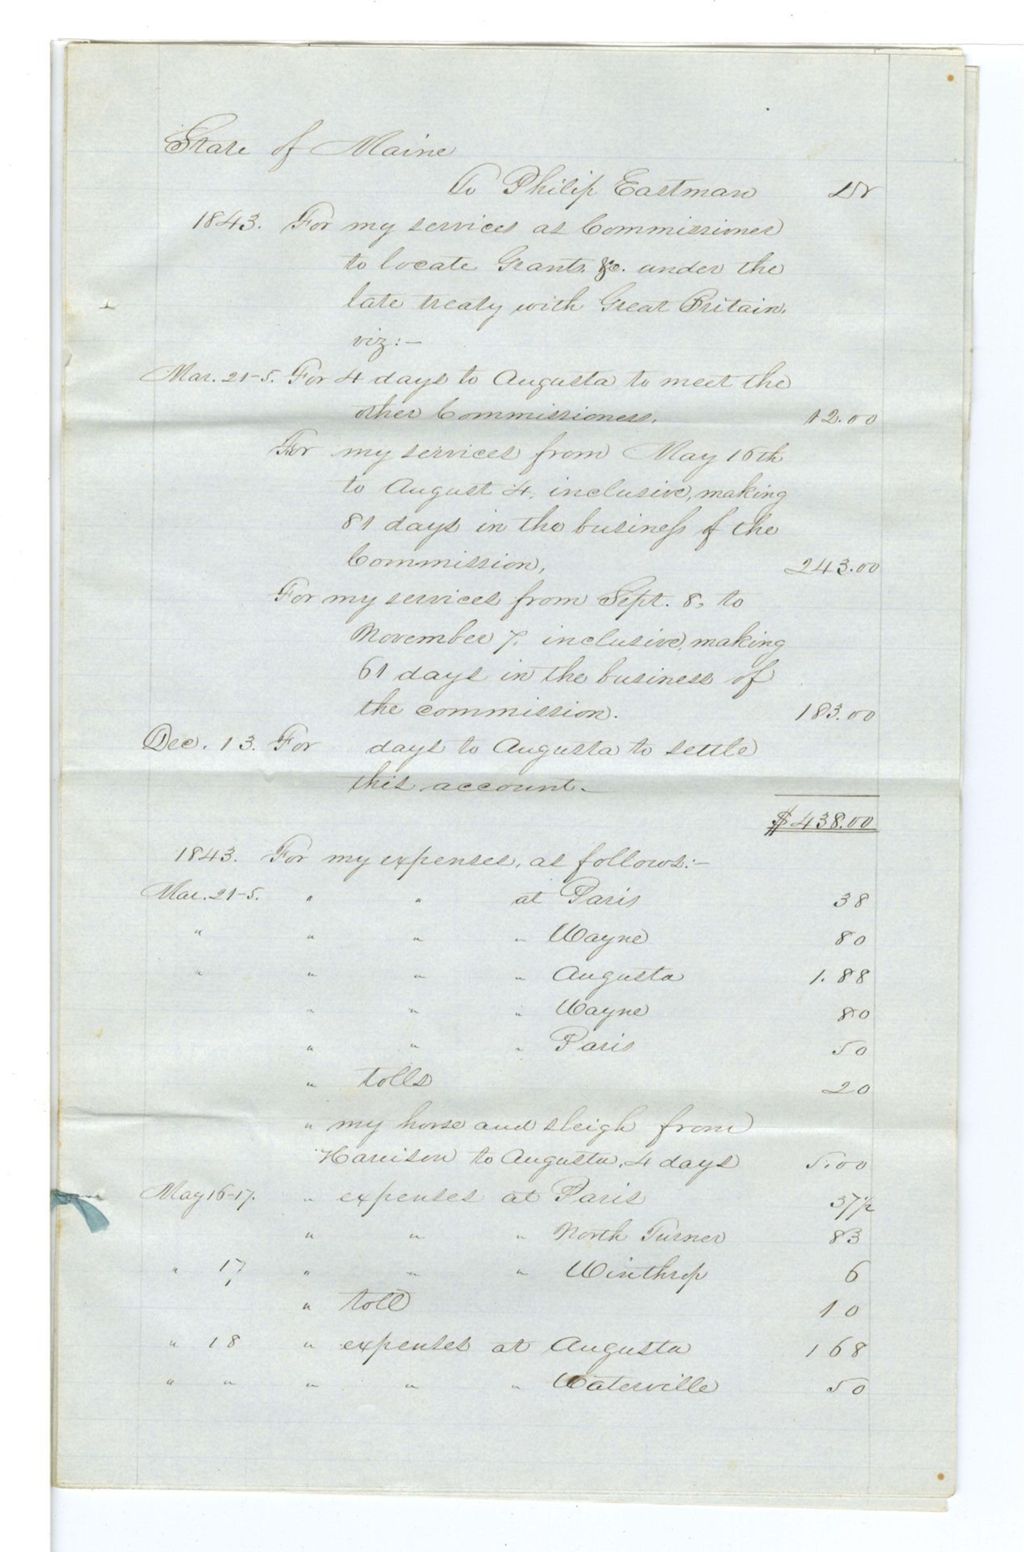 State of Maine
To Philip Eastman Dr
1843. For my services as Commissioner
to locate Grants &c. under the
late treaty with Great Britain,
viz:—
Mar. 21-5. For 4 days to Augusta to meet the
other Commissioners. 12.00
For my services from May 16th
to August 4, inclusive, making
81 days in the business of the
Commission, 243.00
For my services from Sept. 8, to
November 7, inclusive, making
61 days in the business of
the commission. 183.00
Dec. 13. For days to Augusta to settle
this account.—
$438.00
1843. For my expenses, as follows:—
Mar. 21-5. " " at Paris 38
" " " " Wayne 80
" " " " Augusta 1.88
" " " Wayne 80
" " " Paris 50
" tolls 20
" my horse and sleigh from
Harrison to Augusta, 4 days 5.00
May 16-17. " expenses at Paris 37½
" " " North Turner 83
" 17 " " " Winthrop 6
" toll 10
" 18 " expenses at Augusta 168
" " " " " Waterville 50